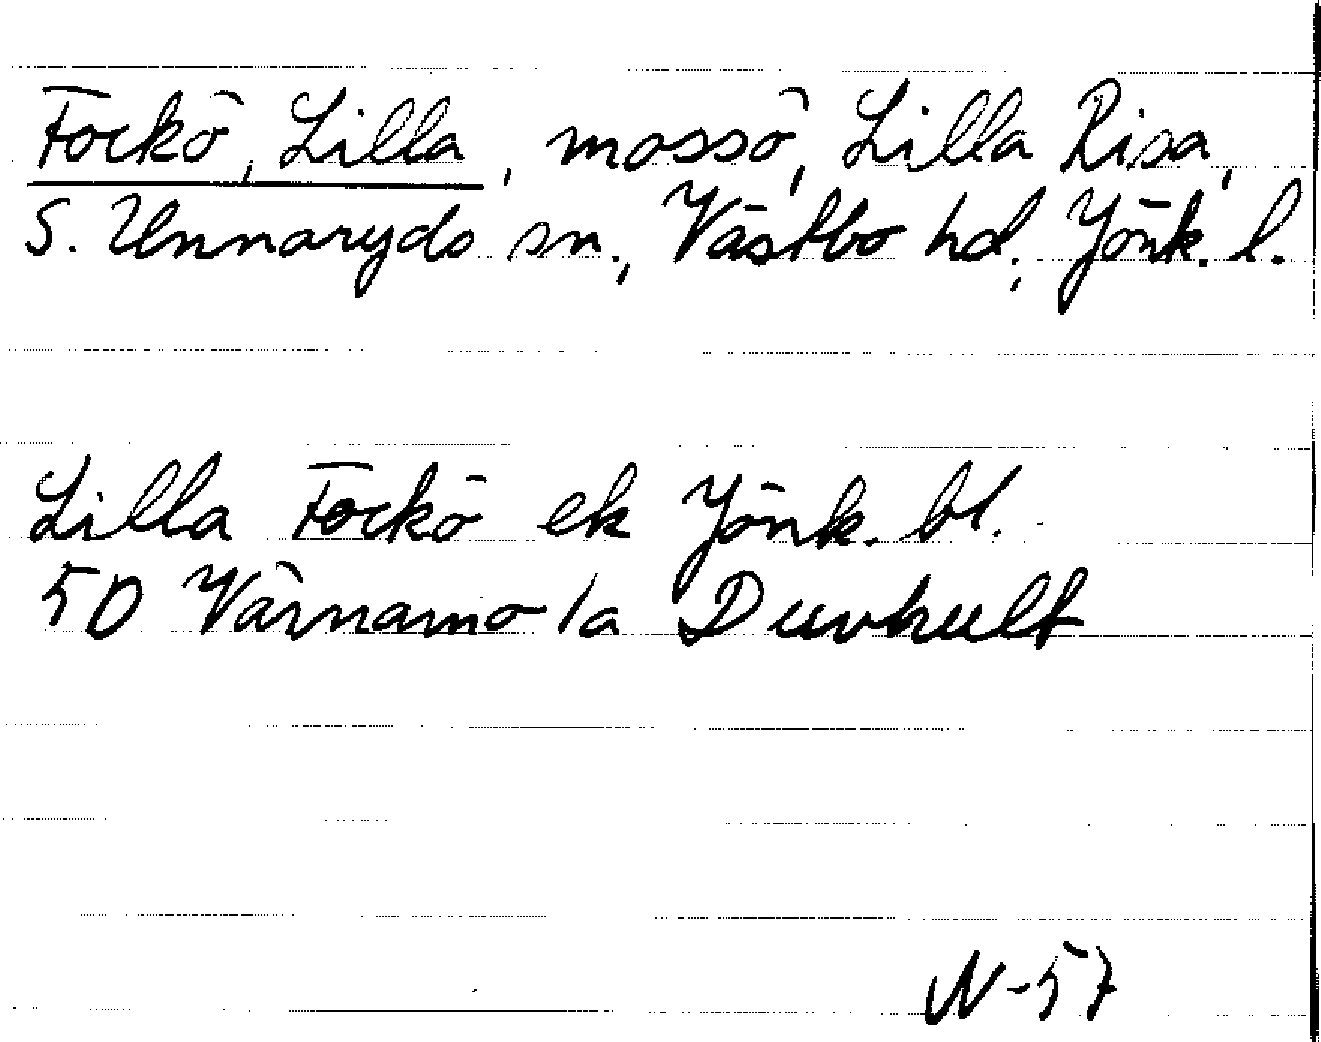 Fockö, Lilla, mossö, Lilla Risa,
S. Unnaryds sn., Västbo hd., Jönk. l.
Lilla Fockö ek Jönk. bl.
50 Värnamo 1a Duvhult
N-57